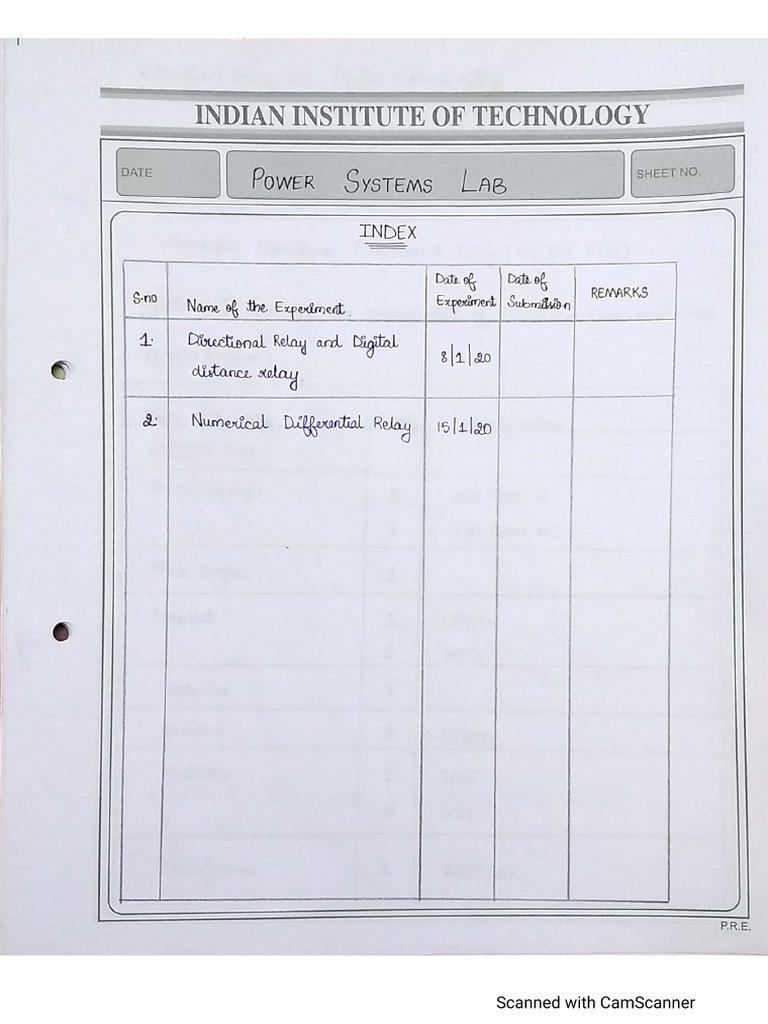 INDIAN INSTITUTE OF TECHNOLOGY
DATE
POWER SYSTEMS LAB
SHEET NO.
INDEX
S.no
Name of the Experiment.
Date of
Experiment
Date of
Submission
REMARKS
1. Directional Relay and Digital
distance relay.
8/1/20
2. Numerical Differential Relay
15/1/20
P.R.E.
Scanned with CamScanner